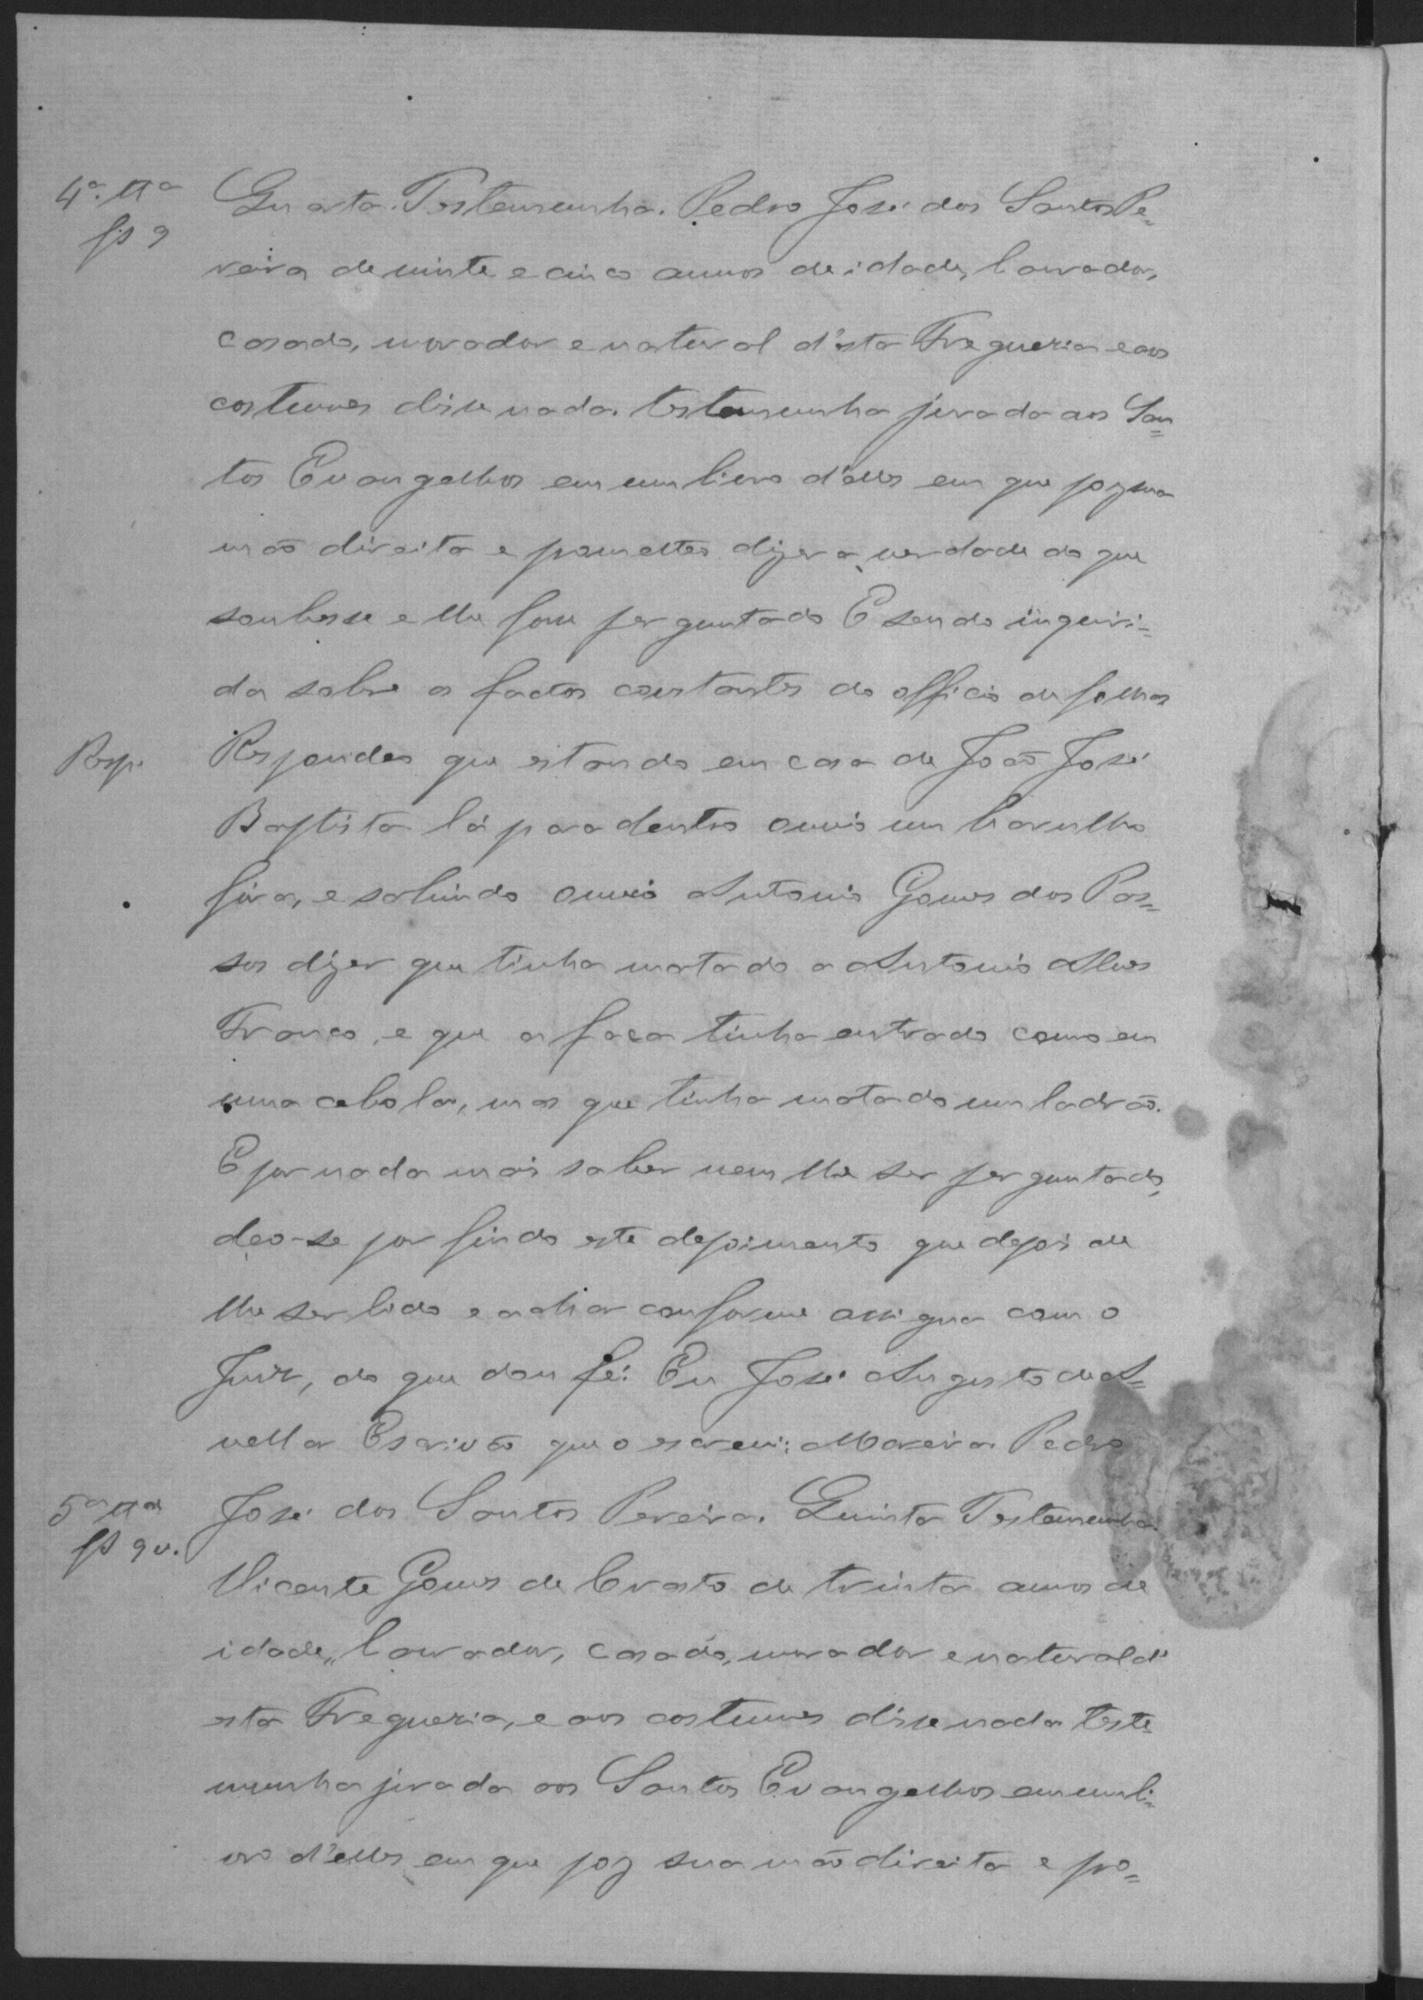 4ª. ttª
fs 9
Quarta. Testemunha. Pedro José dos Santos Pe=
reira de vinte e cinco annos de idade, lavrador,
casado, morador e natural d'esta Fregueria e aos
costumes disse nada. testemunha jurada aos San=
tos Evangelhos em um livro d'elles em que poz sua
mão direita e prometteo dizer a verdade do que
soubesse e lhe fosse perguntado E sendo inquiri=
da sobre os factos constantes do officio de folhas
Resp.
Respondeo que estando em casa de João José
Baptista lá para dentro ouvio um barulho
fóra, e sahindo ouvio Antonio Gomes dos Pas=
sos dizer que tinha matado a Antonio Alves
Franco, e que a faca tinha entrado como em
uma cebola, mas que tinha matado um ladrão.
E por nada mais saber nem lhe ser perguntado,
deo-se por findo este depoimento que depois de
lhe ser lido e achar conforme assigna com o
Juiz, do que dou fé: Eu José Augusto de A=
vellar Escrivão que o escrevi: Moreira. Pedro
5ª ttª
fs 9 v.
José dos Santos Pereira. Quinta Testemunha.
Vicente Gomes de Crasto de trinta annos de
idade,, lavrador, casado, morador e natural d'
esta Fregueria, e aos costumes disse nada teste=
munha jurada aos Santos Evangelhos em um li=
vro d'elles em que poz sua mão direita e pro=